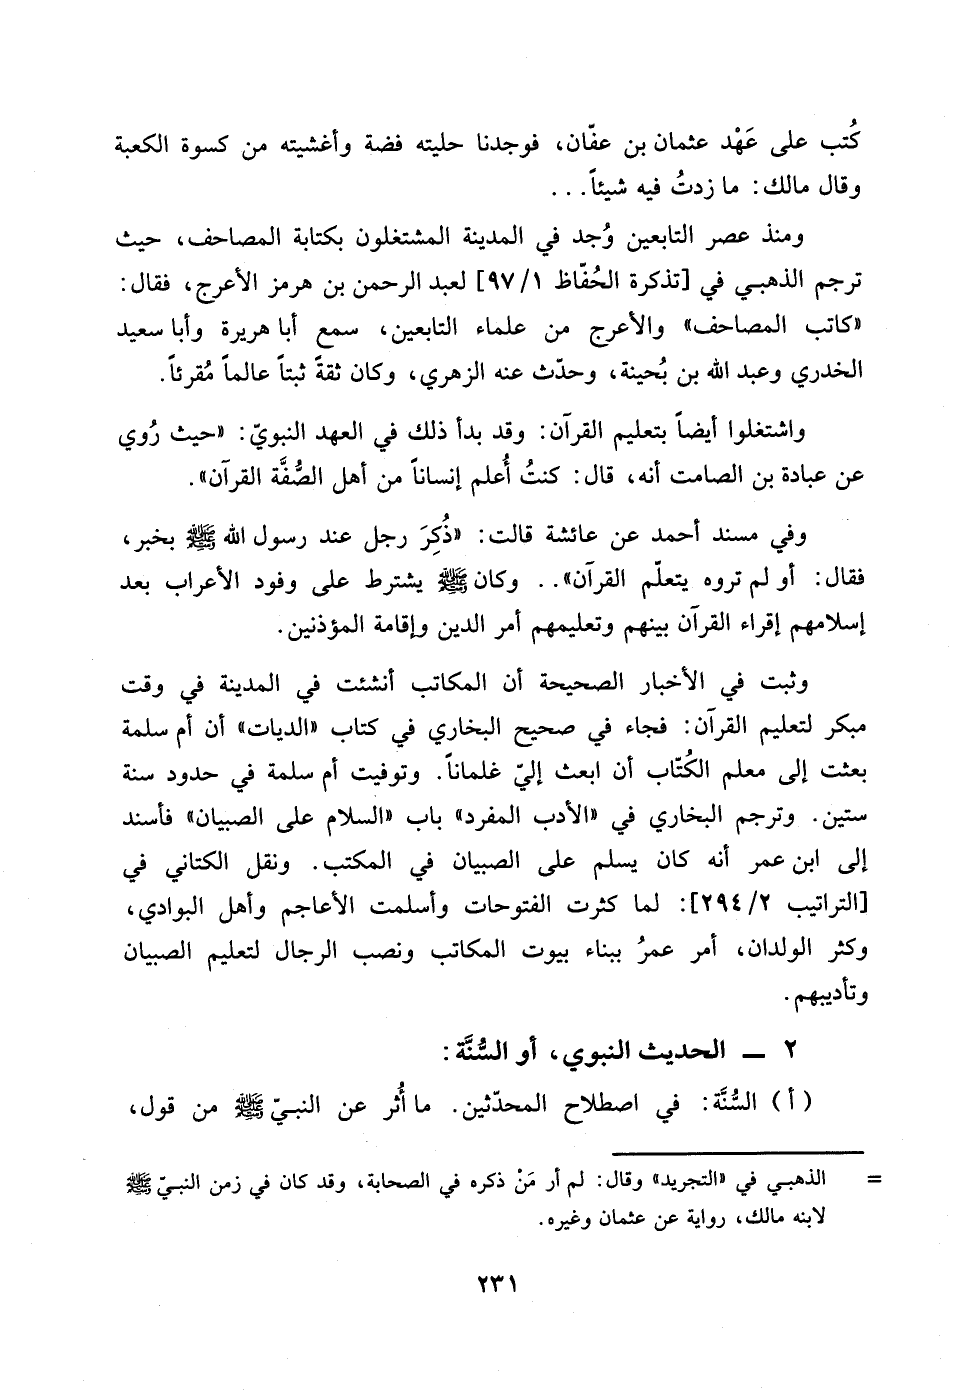 كُتب على عَهْد عثمان بن عفّان، فوجدنا حليته فضة وأغشيته من كسوة الكعبة
وقال مالك: ما زدتُ فيه شيئاً...
ومنذ عصر التابعين وُجد في المدينة المشتغلون بكتابة المصاحف، حيث
ترجم الذهبي في [تذكرة الحُفّاظ ٩٧/١] لعبد الرحمن بن هرمز الأعرج، فقال:
«كاتب المصاحف» والأعرج من علماء التابعين، سمع أبا هريرة وأبا سعيد
الخدري وعبد الله بن بُحينة، وحدّث عنه الزهري، وكان ثقةً ثبتاً عالماً مُقرئاً.
واشتغلوا أيضاً بتعليم القرآن: وقد بدأ ذلك في العهد النبويّ: «حيث رُوي
عن عبادة بن الصامت أنه، قال: كنتُ أُعلم إنساناً من أهل الصُّفَّة القرآن».
وفي مسند أحمد عن عائشة قالت: «ذُكِرَ رجل عند رسول الله ﷺ بخبر،
فقال: أو لم تروه يتعلّم القرآن».. وكان ﷺ يشترط على وفود الأعراب بعد
إسلامهم إقراء القرآن بينهم وتعليمهم أمر الدين وإقامة المؤذنين.
وثبت في الأخبار الصحيحة أن المكاتب أنشئت في المدينة في وقت
مبكر لتعليم القرآن: فجاء في صحيح البخاري في كتاب «الديات» أن أم سلمة
بعثت إلى معلم الكُتّاب أن ابعث إليّ غلماناً. وتوفيت أم سلمة في حدود سنة
ستين. وترجم البخاري في «الأدب المفرد» باب «السلام على الصبيان» فأسند
إلى ابن عمر أنه كان يسلم على الصبيان في المكتب. ونقل الكتاني في
[التراتيب ٢٩٤/٢]: لما كثرت الفتوحات وأسلمت الأعاجم وأهل البوادي،
وكثر الولدان، أمر عمرُ ببناء بيوت المكاتب ونصب الرجال لتعليم الصبيان
وتأديبهم.
٢ ــ الحديث النبوي، أو السُّنَّة:
(أ) السُّنَّة: في اصطلاح المحدّثين. ما أُثر عن النبيّ ﷺ من قول،
= الذهبي في «التجريد» وقال: لم أر مَنْ ذكره في الصحابة، وقد كان في زمن النبيّ ﷺ
لابنه مالك، رواية عن عثمان وغيره.
٢٣١